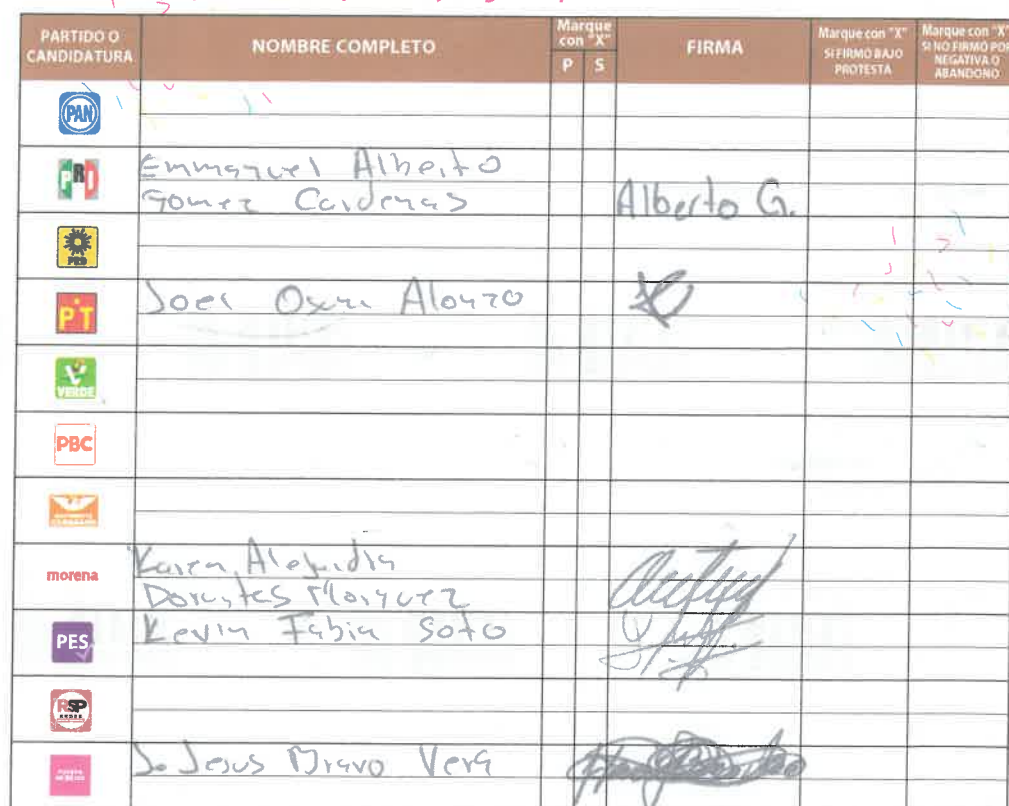 PARTIDO O CANDIDATURA
NOMBRE COMPLETO
Marque con "X"
P S
FIRMA
Marque con "X" SI FIRMÓ BAJO PROTESTA
Marque con "X" SI NO FIRMÓ POR NEGATIVA O ABANDONO
PAN
PRI
Emmanuel Alberto
Gomez Cardenas
Alberto G.
PRD
PT
Joel Alonzo
VERDE
PBC
morena
Karen Alejandra
Dorantes Marquez
PES
Kevin Fabia Soto
RSP
J. Jesus Bravo Vera